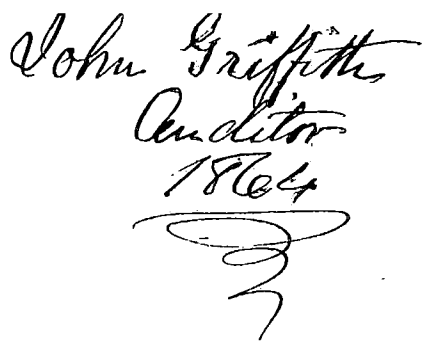 John Griffith
Auditor
1864